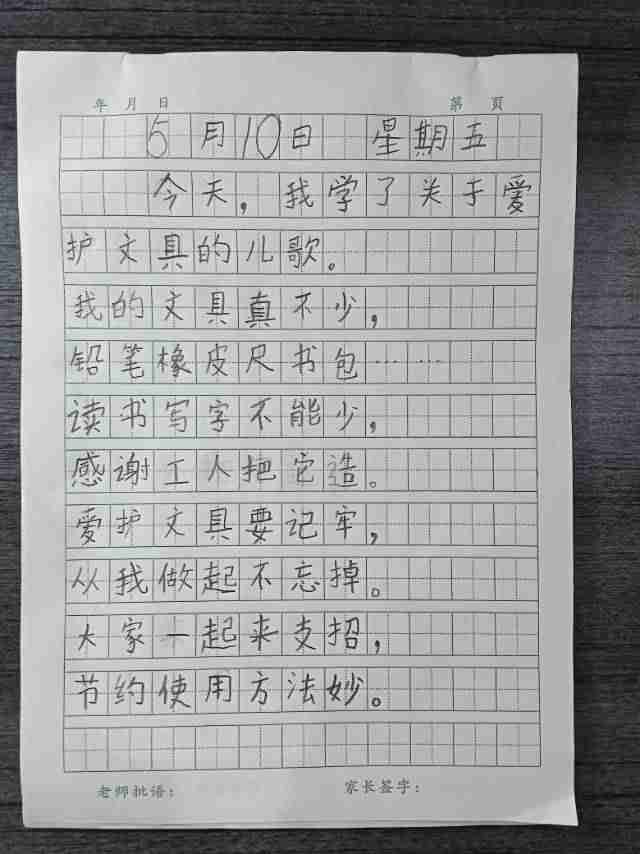 年 月 日 第 頁
5月10日 星期五
今天,我学了关于爱
护文具的儿歌。
我的文具真不少,
铅笔橡皮尺书包……
读书写字不能少,
感谢工人把它造。
爱护文具要记牢,
从我做起不忘掉。
大家一起来支招,
节约使用方法妙。
老师批语: 家长签字: